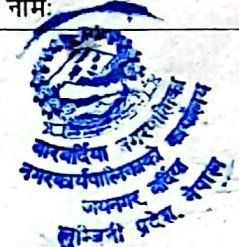 नाम:
बारबर्दिया नगरपालिका
नगरकार्यपालिकाको कार्यालय
जयनगर, बर्दिया
लुम्बिनी प्रदेश, नेपाल